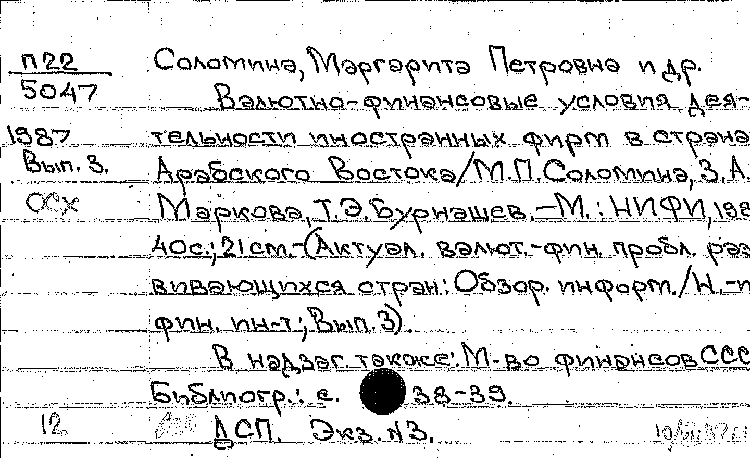 П22 Соломина, Маргарита Петровна и др.
5047 Валютно-финансовые условия дея-
1987 тельности иностранных фирм в страна
Вып. 3. Арабского Востока/М.П.Соломина, З.А.
ОСХ Маркова, Т.Э.Бурнашев.-М.: НИФИ, 198
40с.; 21см.-(Актуал. валют.-фин. пробл. раз
вивающихся стран: Обзор. информ./Н.-и
фин. ин-т; Вып. 3).
В надзаг. также: М-во финансов ССС
Библиогр.: с. 38-39.
12 ДСП. Экз. N3.